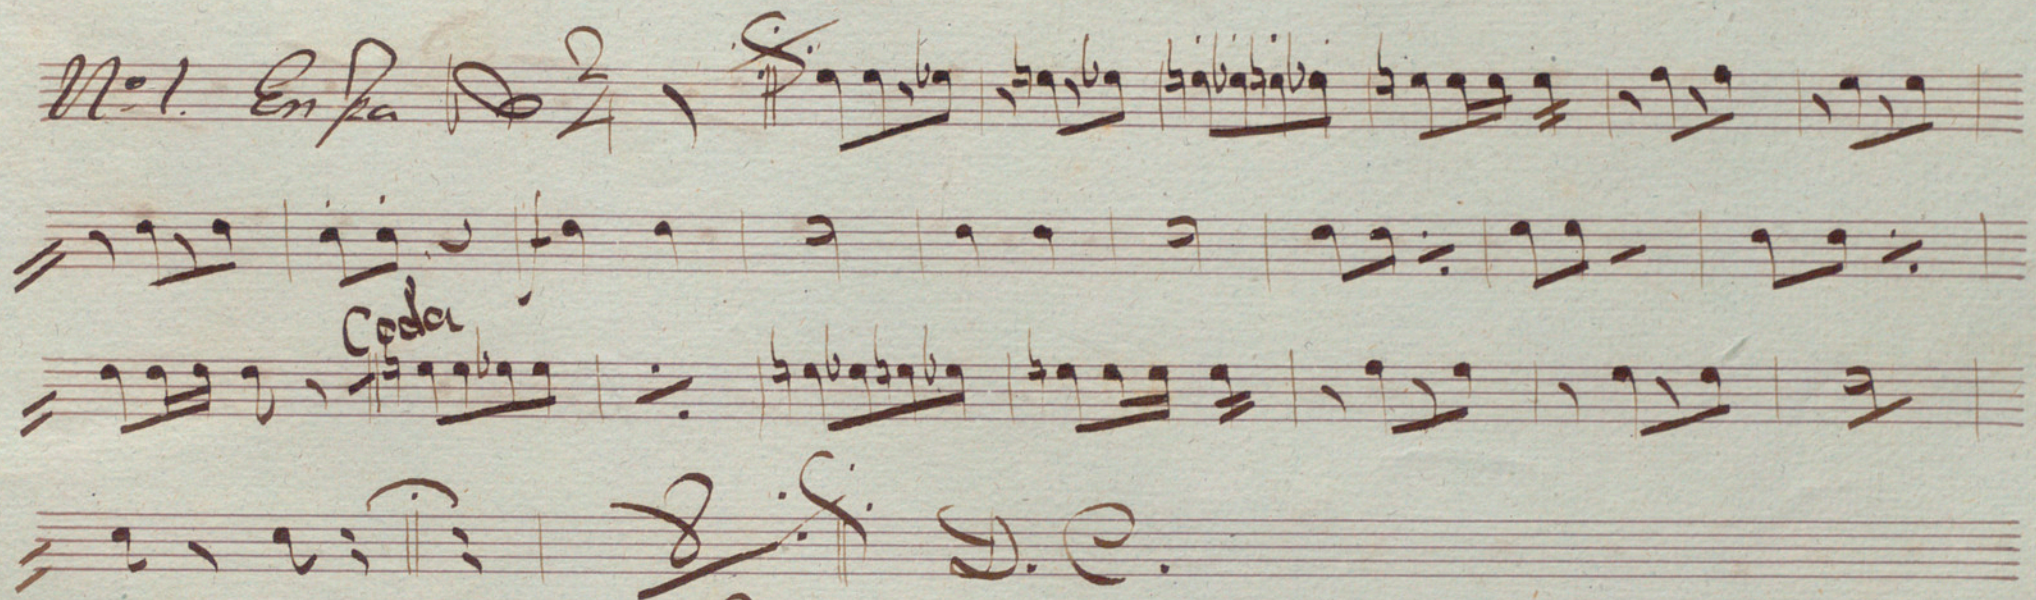 No 1. En fa 2/4
Coda
8
D. C.